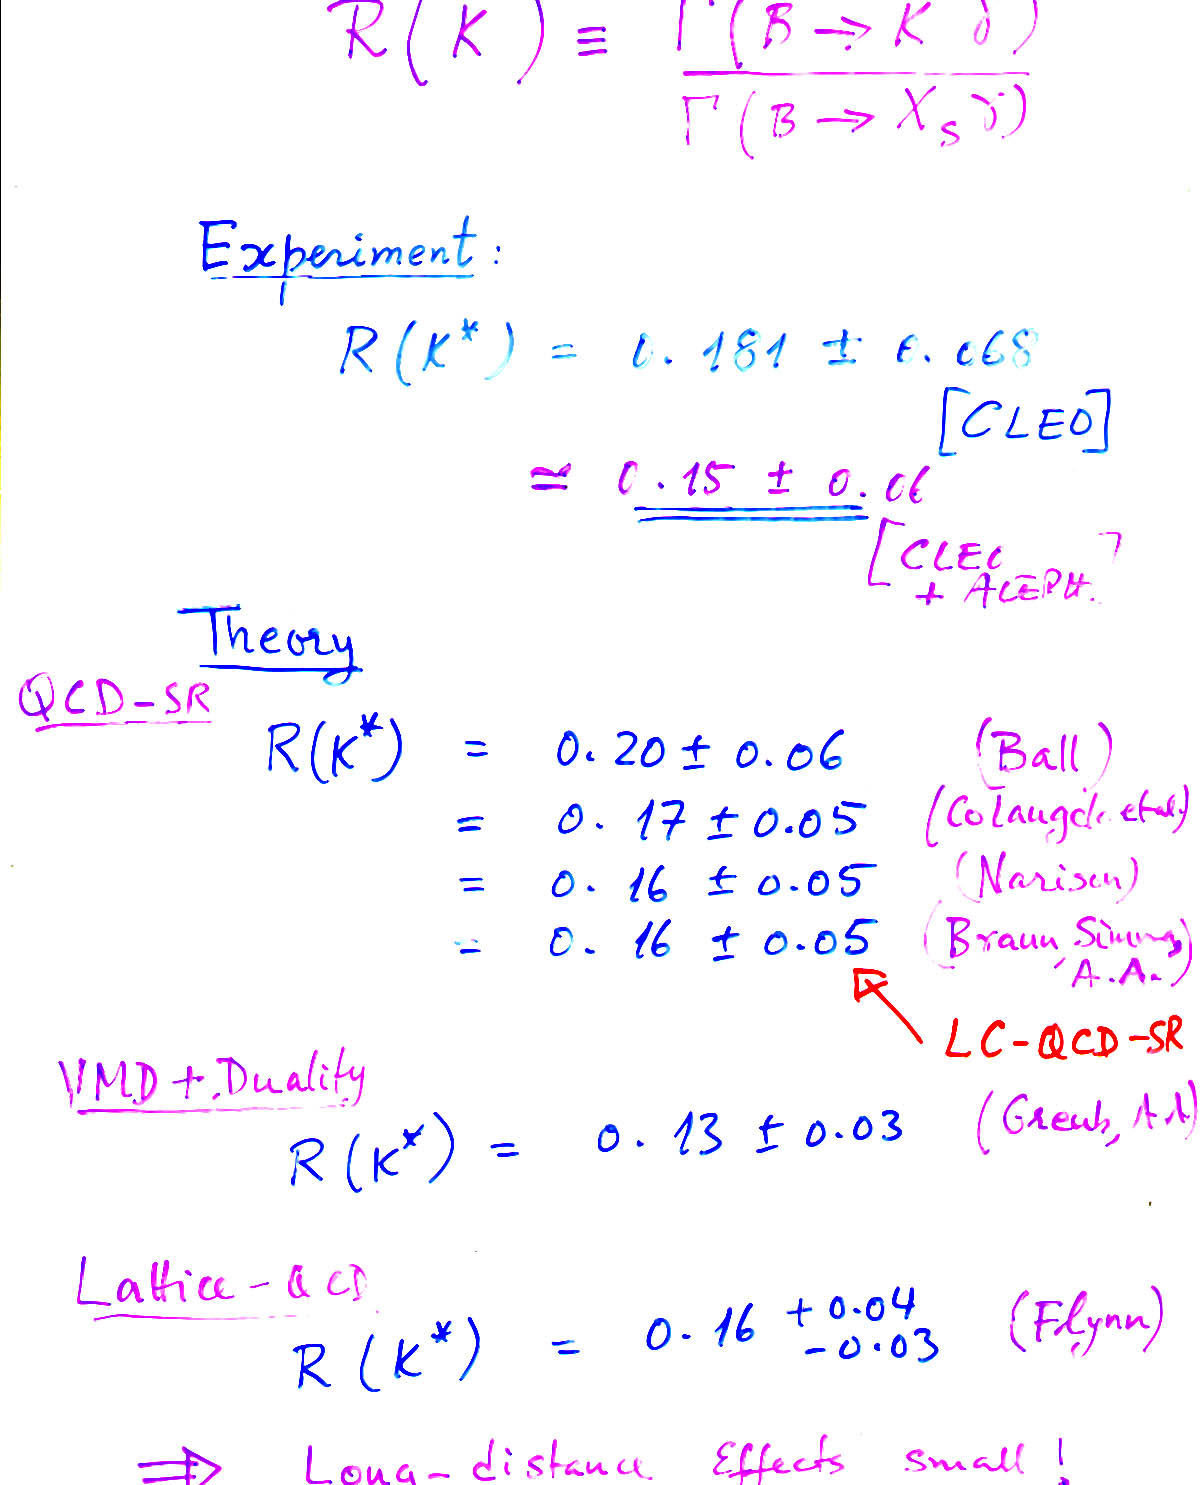 R(K) ≡ Γ(B → K γ)
Γ(B → X_s γ)
Experiment:
R(K*) = 0.181 ± 0.068
[CLEO]
≃ 0.15 ± 0.06
[CLEO
+ ALEPH]
Theory
QCD-SR
R(K*) = 0.20 ± 0.06 (Ball)
= 0.17 ± 0.05 (Colangelo et al)
= 0.16 ± 0.05 (Narison)
= 0.16 ± 0.05 (Braun, Simma,
A.A.)
LC-QCD-SR
VMD + Duality
R(K*) = 0.13 ± 0.03 (Greub, AA)
Lattice-QCD
R(K*) = 0.16 +0.04 -0.03 (Flynn)
⇒ Long-distance Effects small!